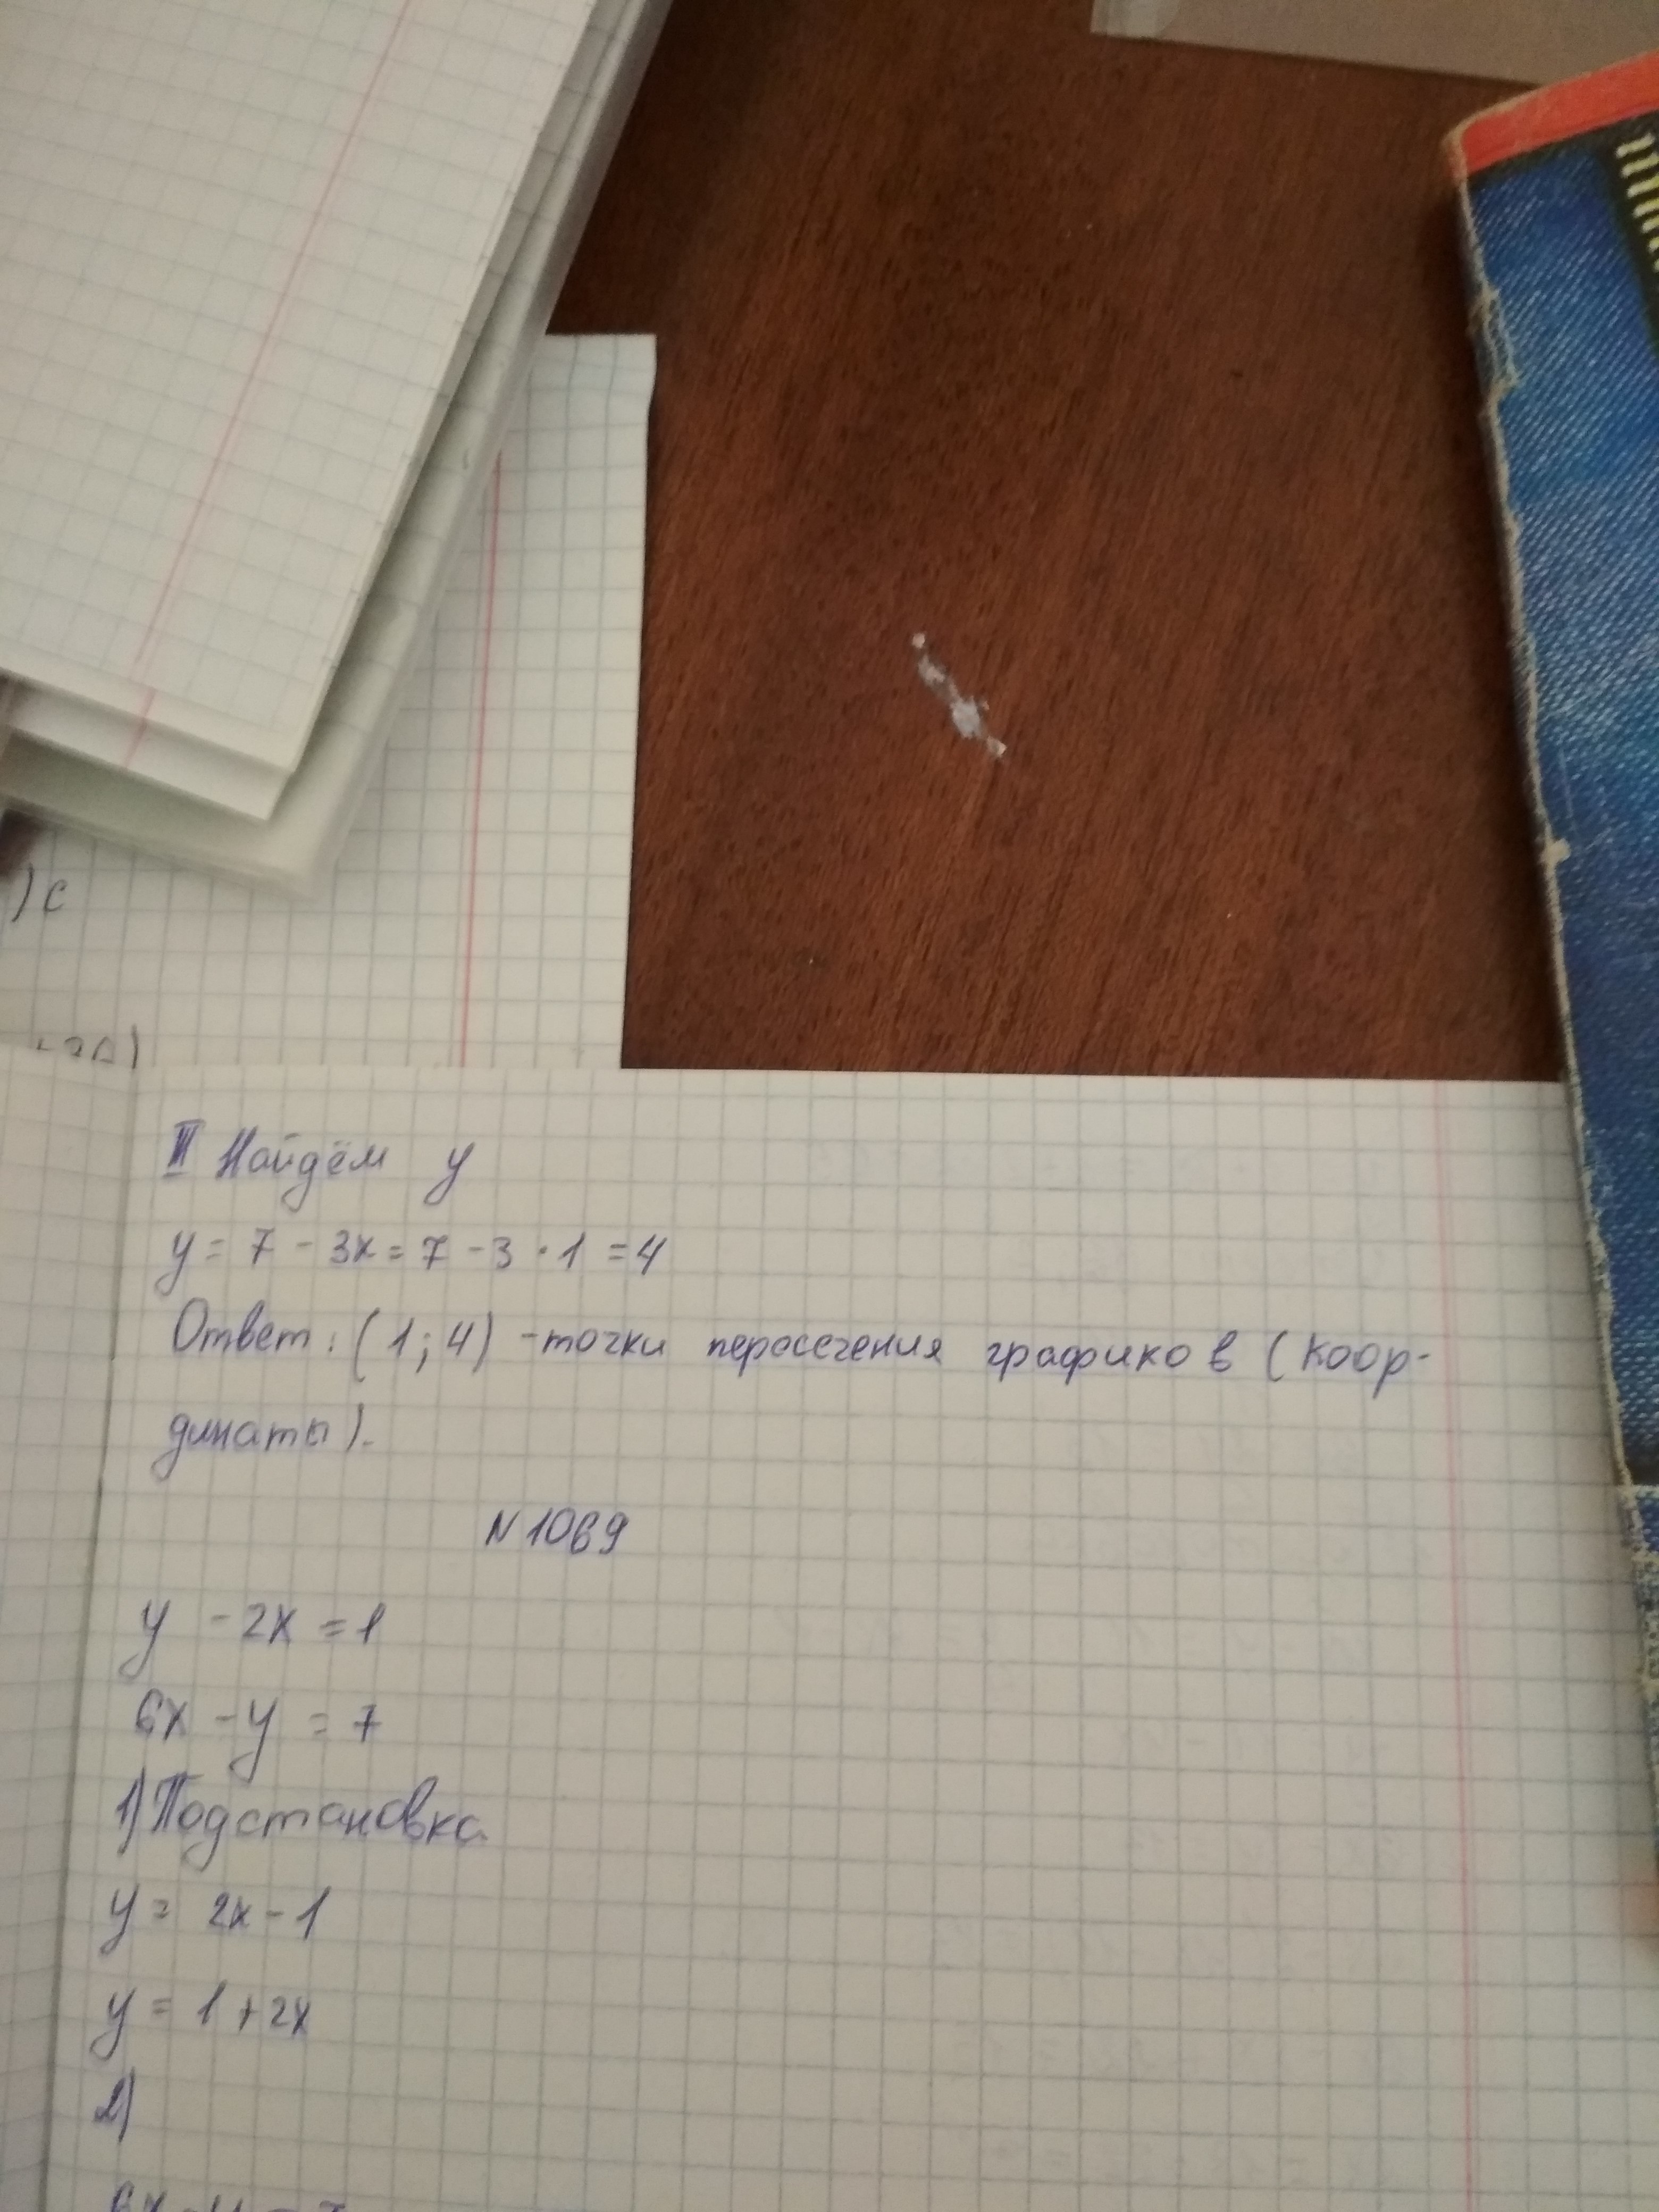 )с
III Найдём y
y = 7 - 3x = 7 - 3 · 1 = 4
Ответ: (1; 4) - точки пересечения графиков (коор-
динаты).
N 1069
y - 2x = 1
6x - y = 7
1) Подстановка
y = 2x - 1
y = 1 + 2x
2)
6x - y = 7